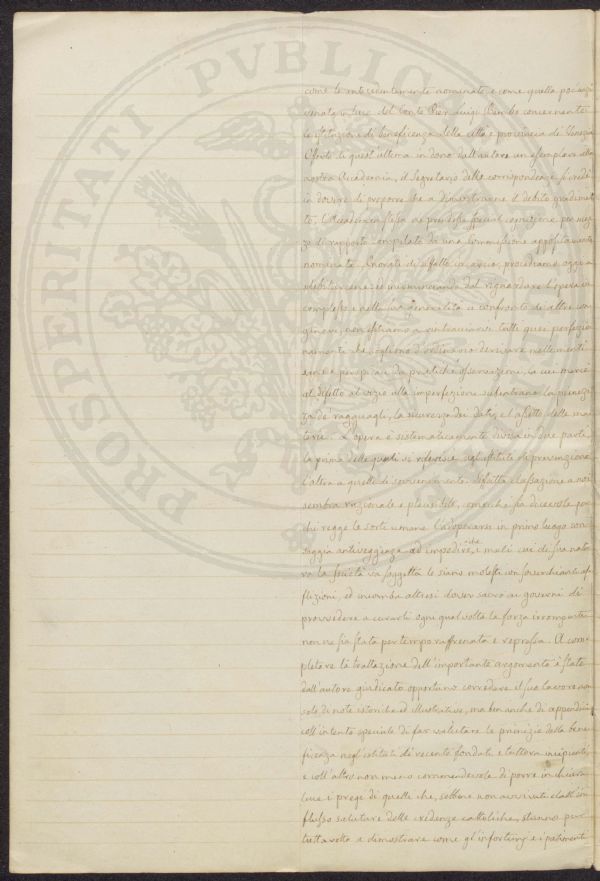 PROSPERITATI PVBLICAE
come le antecedentemente nominate e come quella poi anzi
venuta in luce del Conte Pier Luigi Bembo concernente
le istituzioni di beneficenza della città e provincia di Venezia
Offerto di quest'ultima in dono dall'autore un esemplare alla
nostra Accademia, il Segretario delle corrispondenze si credè
in dovere di proporre che a dimostrarne il debito gradimen
to, l'Accademia stessa ne prendesse special cognizione per mez
zo di rapporto compilato da una Commissione appositamente
nominata. Onorati di siffatto incarico, procediamo oggi a
, ed incominciando dal riguardare l'opera in
complesso e nella sua generalità a confronto di altre con
generi, non esitiamo a rintracciarvi tutti quei perfezio
namenti che sogliono d'ordinario derivare nelle menti
da pratiche osservazioni, la cui mercè
al difetto al vizio alla imperfezione subentrano la pienez
za de' ragguagli, la sicurezza dei dati, e l'assetto delle ma
terie. L'opera è sistematicamente divisa in due parti
la prima delle quali si riferisce agl'istituti di prevenzione
l'altra a quelli di sovvenimento. Siffatta classazione a noi
sembra razionale e plausibile, comechè sia doveroso per
chi regge le sorti umane l'adoperarsi in primo luogo con
saggia antiveggenza ad impedire, che i mali cui di sua natu
ra la società va soggetta le siano molesti con soverchianti af
flizioni, ed incomba altresì dover sacro ai governi di
provvedere a curarli ogni qual volta la forza irrompente
non ne sia stata per tempo raffrenata e repressa. A com
pletare la trattazione dell'importante argomento è stato
dall'autore giudicato opportuno corredare il suo lavoro non
solo di note istoriche ed illustrative, ma ben anche di appendici
coll'intento speciale di far valutare le primizie della bene
ficenza negl'istituti di recente fondati e tuttora incipienti,
e coll'altro non meno commendevole di porre in chiara
luce i pregi di quelli che, sebbene non avvivati dall'in
flusso salutare delle credenze cattoliche, stanno pure
tuttavolta a dimostrare come gl'infortunj e i patimenti